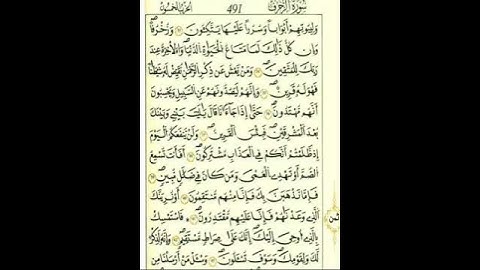 سُورَةُ الزُّخْرُفِ 491 الحزب الخمسون
وَلِبُيُوتِهِمْ أَبْوَاباً وَسُرُراً عَلَيْهَا يَتَّكِـُٔونَ وَزُخْرُفاً
وَإِن كُلُّ ذَٰلِكَ لَمَا مَتَاعُ الْحَيَوٰةِ الدُّنْيَا وَالْأَخِرَةُ عِندَ
رَبِّكَ لِلْمُتَّقِينَ وَمَنْ يَعْشُ عَن ذِكْرِ الرَّحْمَٰنِ نُقَيِّضْ لَهُ شَيْطَٰناً
فَهُوَ لَهُ قَرِينٌ وَإِنَّهُمْ لَيَصُدُّونَهُمْ عَنِ السَّبِيلِ وَيَحْسِبُونَ
أَنَّهُم مُّهْتَدُونَ حَتَّىٰ إِذَا جَاءَانَا قَالَ يَٰلَيْتَ بَيْنِي وَبَيْنَكَ
بُعْدَ الْمَشْرِقَيْنِ فَبِئْسَ الْقَرِينُ وَلَنْ يَنفَعَكُمُ الْيَوْمَ
إِذ ظَّلَمْتُمْ أَنَّكُمْ فِي الْعَذَابِ مُشْتَرِكُونَ أَفَأَنتَ تُسْمِعُ
الصُّمَّ أَوْ تَهْدِي الْعُمْيَ وَمَن كَانَ فِي ضَلَٰلٍ مُّبِينٍ
فَإِمَّا نَذْهَبَنَّ بِكَ فَإِنَّا مِنْهُم مُّنتَقِمُونَ أَوْ نُرِيَنَّكَ
الَّذِي وَعَدْنَٰهُمْ فَإِنَّا عَلَيْهِم مُّقْتَدِرُونَ فَاسْتَمْسِكْ
ثمن
بِالَّذِي أُوحِيَ إِلَيْكَ إِنَّكَ عَلَىٰ صِرَاطٍ مُّسْتَقِيمٍ وَإِنَّهُ لَذِكْرٌ
لَّكَ وَلِقَوْمِكَ وَسَوْفَ تُسْـَٔلُونَ وَسْـَٔلْ مَنْ أَرْسَلْنَا مِن